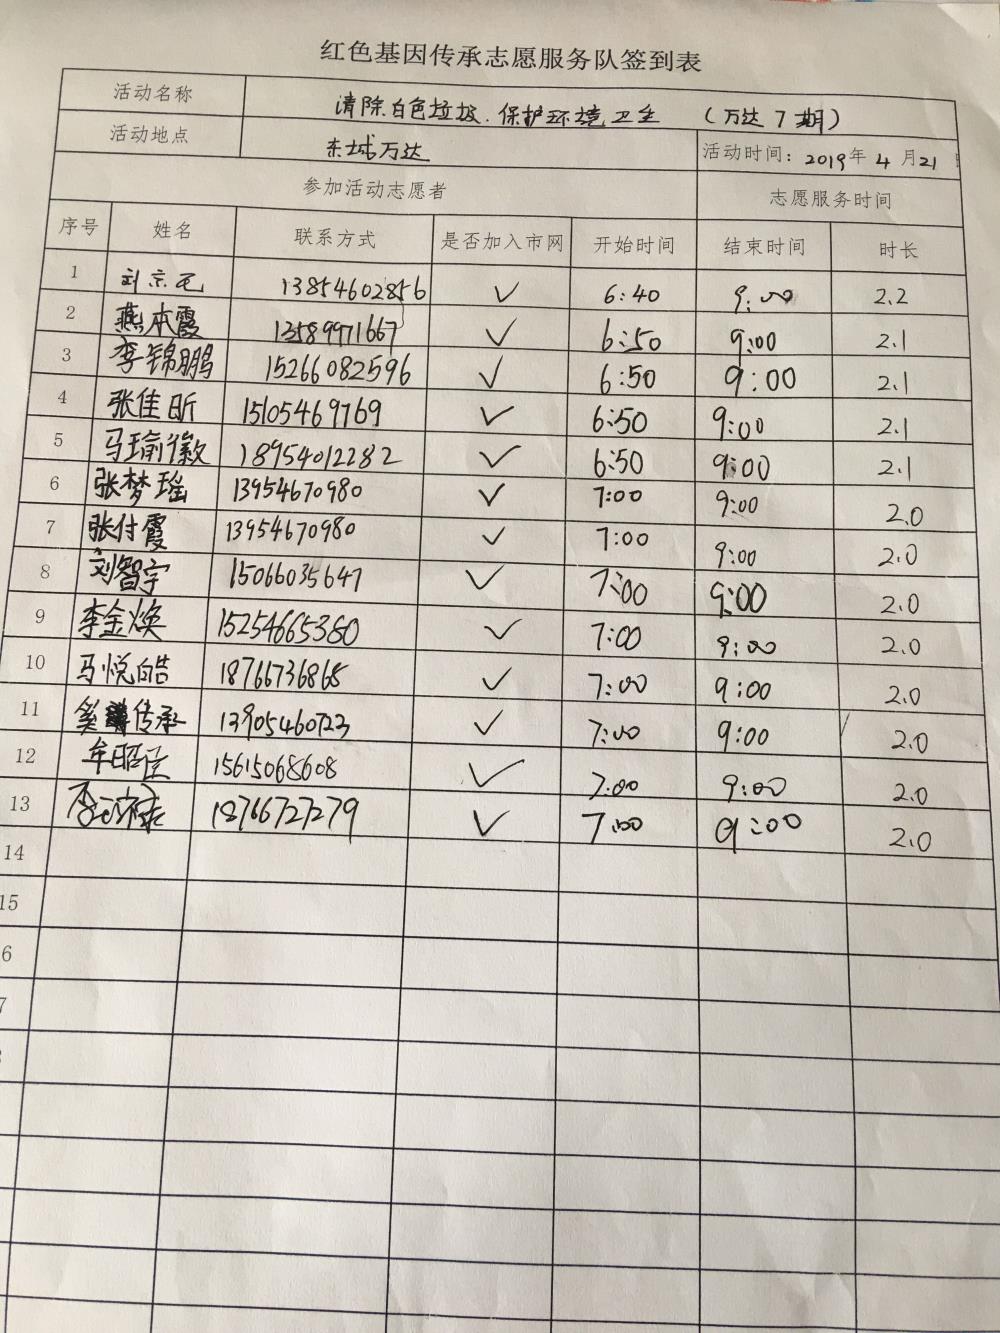 红色基因传承志愿服务队签到表
活动名称 清除白色垃圾.保护环境卫生 (万达7期)
活动地点 东城万达 活动时间: 2019年4月21
参加活动志愿者 志愿服务时间
序号 姓名 联系方式 是否加入市网 开始时间 结束时间 时长
1 刘京元 13854602856 ✓ 6:40 9:00 2.2
2 燕本霞 13589971667 ✓ 6:50 9:00 2.1
3 李锦鹏 15266082596 ✓ 6:50 9:00 2.1
4 张佳昕 15105469769 ✓ 6:50 9:00 2.1
5 马瑜徽 18954012282 ✓ 6:50 9:00 2.1
6 张梦瑶 13954670980 ✓ 7:00 9:00 2.0
7 张付霞 13954670980 ✓ 7:00 9:00 2.0
8 刘智宇 15066035647 ✓ 7:00 9:00 2.0
9 李金焕 15254665380 ✓ 7:00 9:00 2.0
10 马悦皓 18766736865 ✓ 7:00 9:00 2.0
11 传承 13905460723 ✓ 7:00 9:00 2.0
12 牟昭臣 15615068608 ✓ 7:00 9:00 2.0
13 李 18766727279 ✓ 7:00 9:00 2.0
14
15
6
7